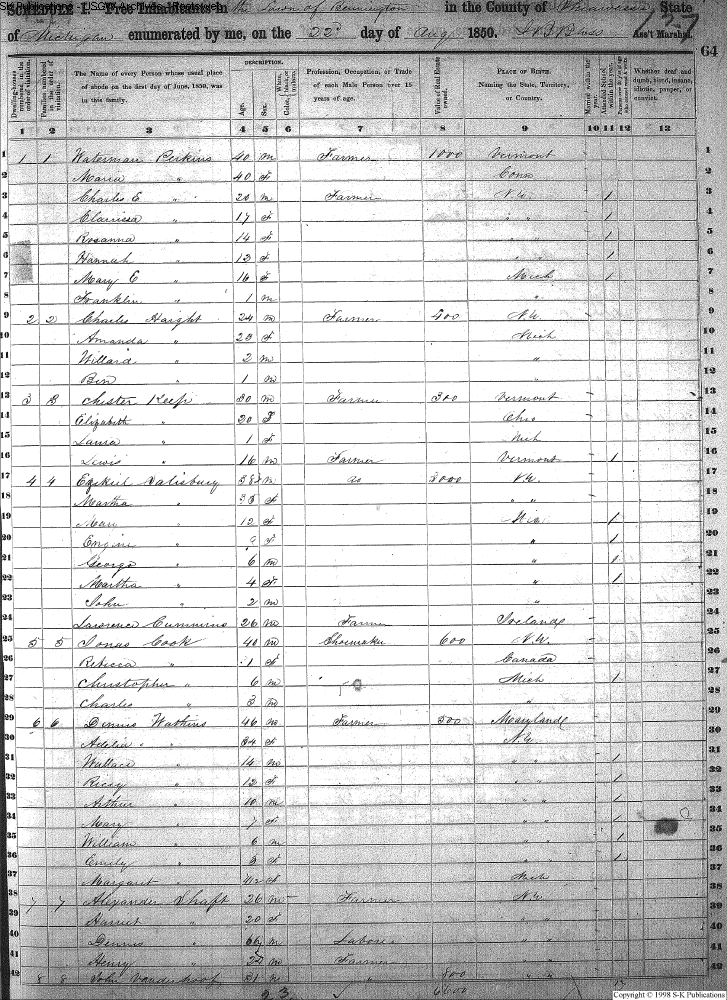 SCHEDULE I. Free Inhabitants in the Town of Bennington in the County of Shiawassee State
of Michigan enumerated by me, on the 22d day of Aug 1850. Ass't Marshal.
64
DESCRIPTION.
Dwelling-houses numbered in the order of visitation.
Families numbered in the order of visitation.
The Name of every Person whose usual place of abode on the first day of June, 1850, was in this family.
Age.
Sex.
Profession, Occupation, or Trade of each Male Person over 15 years of age.
Value of Real Estate owned.
PLACE OF BIRTH. Naming the State, Territory, or Country.
Married within the year.
Attended School within the year.
Whether deaf and dumb, blind, insane, idiotic, pauper, or convict.
1 2 3 4 5 6 7 8 9 10 11 12 13
1 1 1 Waterman Perkins 40 m Farmer 1000 Vermont 1
2 Maria " 40 f Conn 2
3 Charles E " 20 m Farmer N.Y. 1 3
4 Clarissa " 17 f " " 1 4
5 Rosanna " 14 f " " 1 5
6 Hannah " 12 f " " 1 6
7 Mary E " 16 f Mich 1 7
8 Franklin " 1 m " 8
9 2 2 Charles Haight 24 m Farmer 400 N.Y. 9
10 Amanda " 23 f Mich 10
11 Willard " 2 m " 11
12 Ben " 1 m " 12
13 3 3 Chester Keep 30 m Farmer 300 Vermont 13
14 Elizabeth " 20 f Ohio 14
15 Laura " 1 f Mich 15
16 Lewis " 16 m Farmer Vermont 1 16
17 4 4 Ezekiel Salisbury 38 m do 3000 N.Y. 17
18 Martha " 33 f " " 18
19 Mary " 12 f Mich 1 19
20 Engine " 9 f " 1 20
21 George " 6 m " 1 21
22 Martha " 4 f " 1 22
23 John " 2 m " 23
24 Lawrence Cummins 26 m Farmer Ireland 24
25 5 5 Jonas Cook 40 m Shoemaker 600 N.Y. 25
26 Rebecca " f Canada 26
27 Christopher " 6 m Mich 1 27
28 Charles " 3 m " 28
29 6 6 Dennis Watkins 46 m Farmer 500 Maryland 29
30 Adelia " 34 f N.Y. 30
31 Wallace " 14 m " " 1 31
32 " 12 f " " 1 32
33 Arthur " 10 m " " 1 33
34 Mary " 7 f " " 1 34
35 William " 6 m " " 1 35
36 Emily " 3 f " 1 36
37 Margaret " f Mich 37
38 7 7 Alexander Shaft 26 m Farmer N.Y. 38
39 Harriet " 20 f " " 39
40 Dennis " m Laborer " " 40
41 Henry " 22 m Farmer " " 41
42 8 8 John Vanderhoof 31 m " 800 " " 42
23 6600
Copyright © 1998 S-K Publications